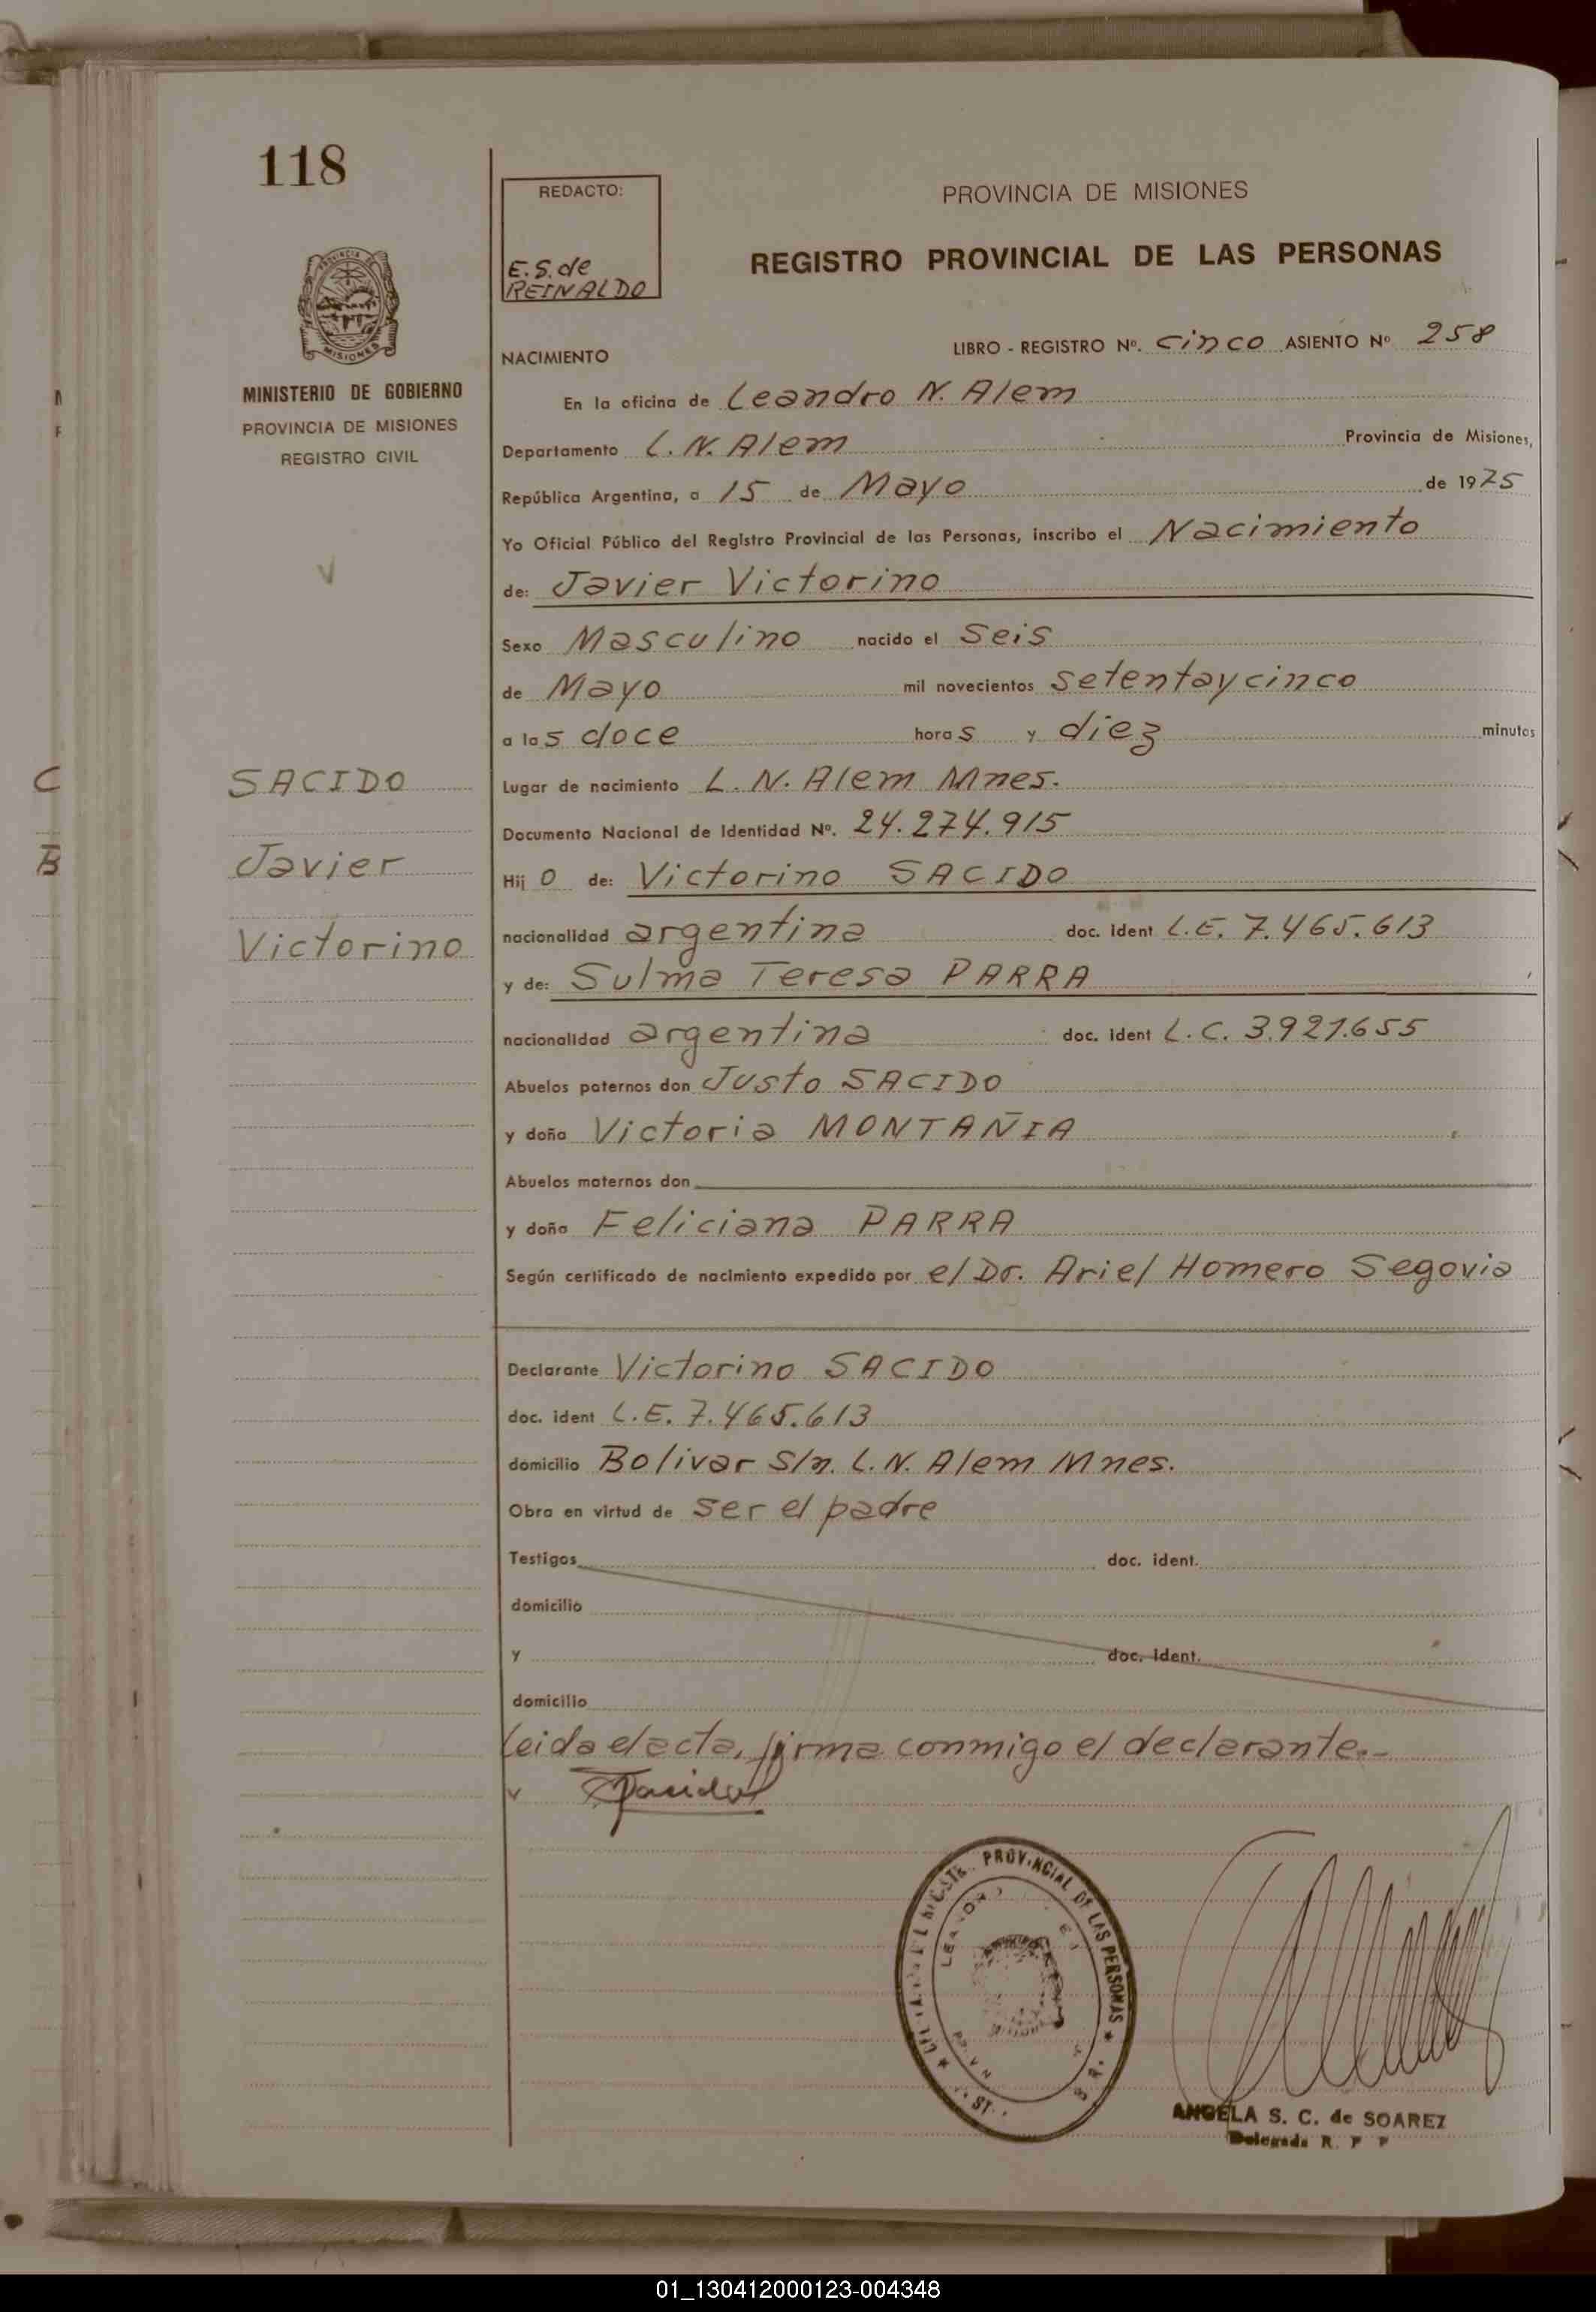 118
REDACTO:
E.S. de
REINALDO
PROVINCIA DE MISIONES
REGISTRO PROVINCIAL DE LAS PERSONAS
MISIONES
MINISTERIO DE GOBIERNO
PROVINCIA DE MISIONES
REGISTRO CIVIL
NACIMIENTO
LIBRO - REGISTRO Nº. cinco ASIENTO Nº 258
En la oficina de Leandro N. Alem
Departamento L. N. Alem Provincia de Misiones,
República Argentina, a 15 de Mayo de 1975
Yo Oficial Público del Registro Provincial de las Personas, inscribo el Nacimiento
de: Javier Victorino
Sexo Masculino nacido el Seis
de Mayo mil novecientos setentaycinco
a las doce horas y diez minutos
SACIDO
Javier
Victorino
Lugar de nacimiento L. N. Alem Mnes.
Documento Nacional de Identidad Nº. 24.274.915
Hijo de: Victorino SACIDO
nacionalidad argentina doc. ident L.E. 7.465.613
y de: Sulma Teresa PARRA
nacionalidad argentina doc. ident L.C. 3.921.655
Abuelos paternos don Justo SACIDO
y doña Victoria MONTAÑIA
Abuelos maternos don
y doña Feliciana PARRA
Según certificado de nacimiento expedido por el Dr. Ariel Homero Segovia
Declarante Victorino SACIDO
doc. ident L.E. 7.465.613
domicilio Bolivar S/n. L. N. Alem Mnes.
Obra en virtud de ser el padre
Testigos doc. ident.
domicilio
y doc. ident.
domicilio
Leida el acta, firma conmigo el declarante.-
PROVINCIAL DE LAS PERSONAS
ANGELA S. C. de SOAREZ
Delegada R. P P
01_130412000123-004348